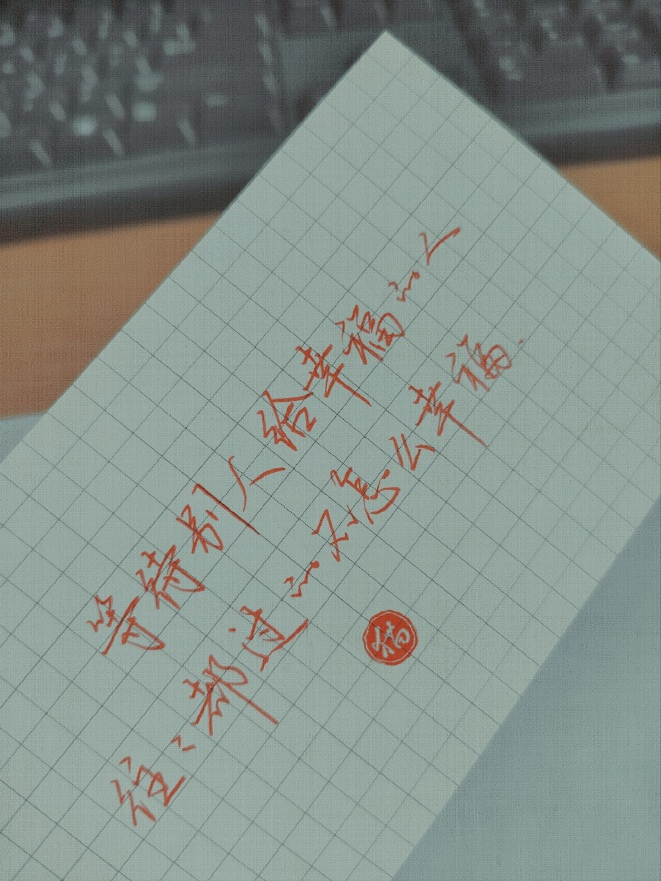 等待别人给幸福的人
往々都过的不怎么幸福.
福